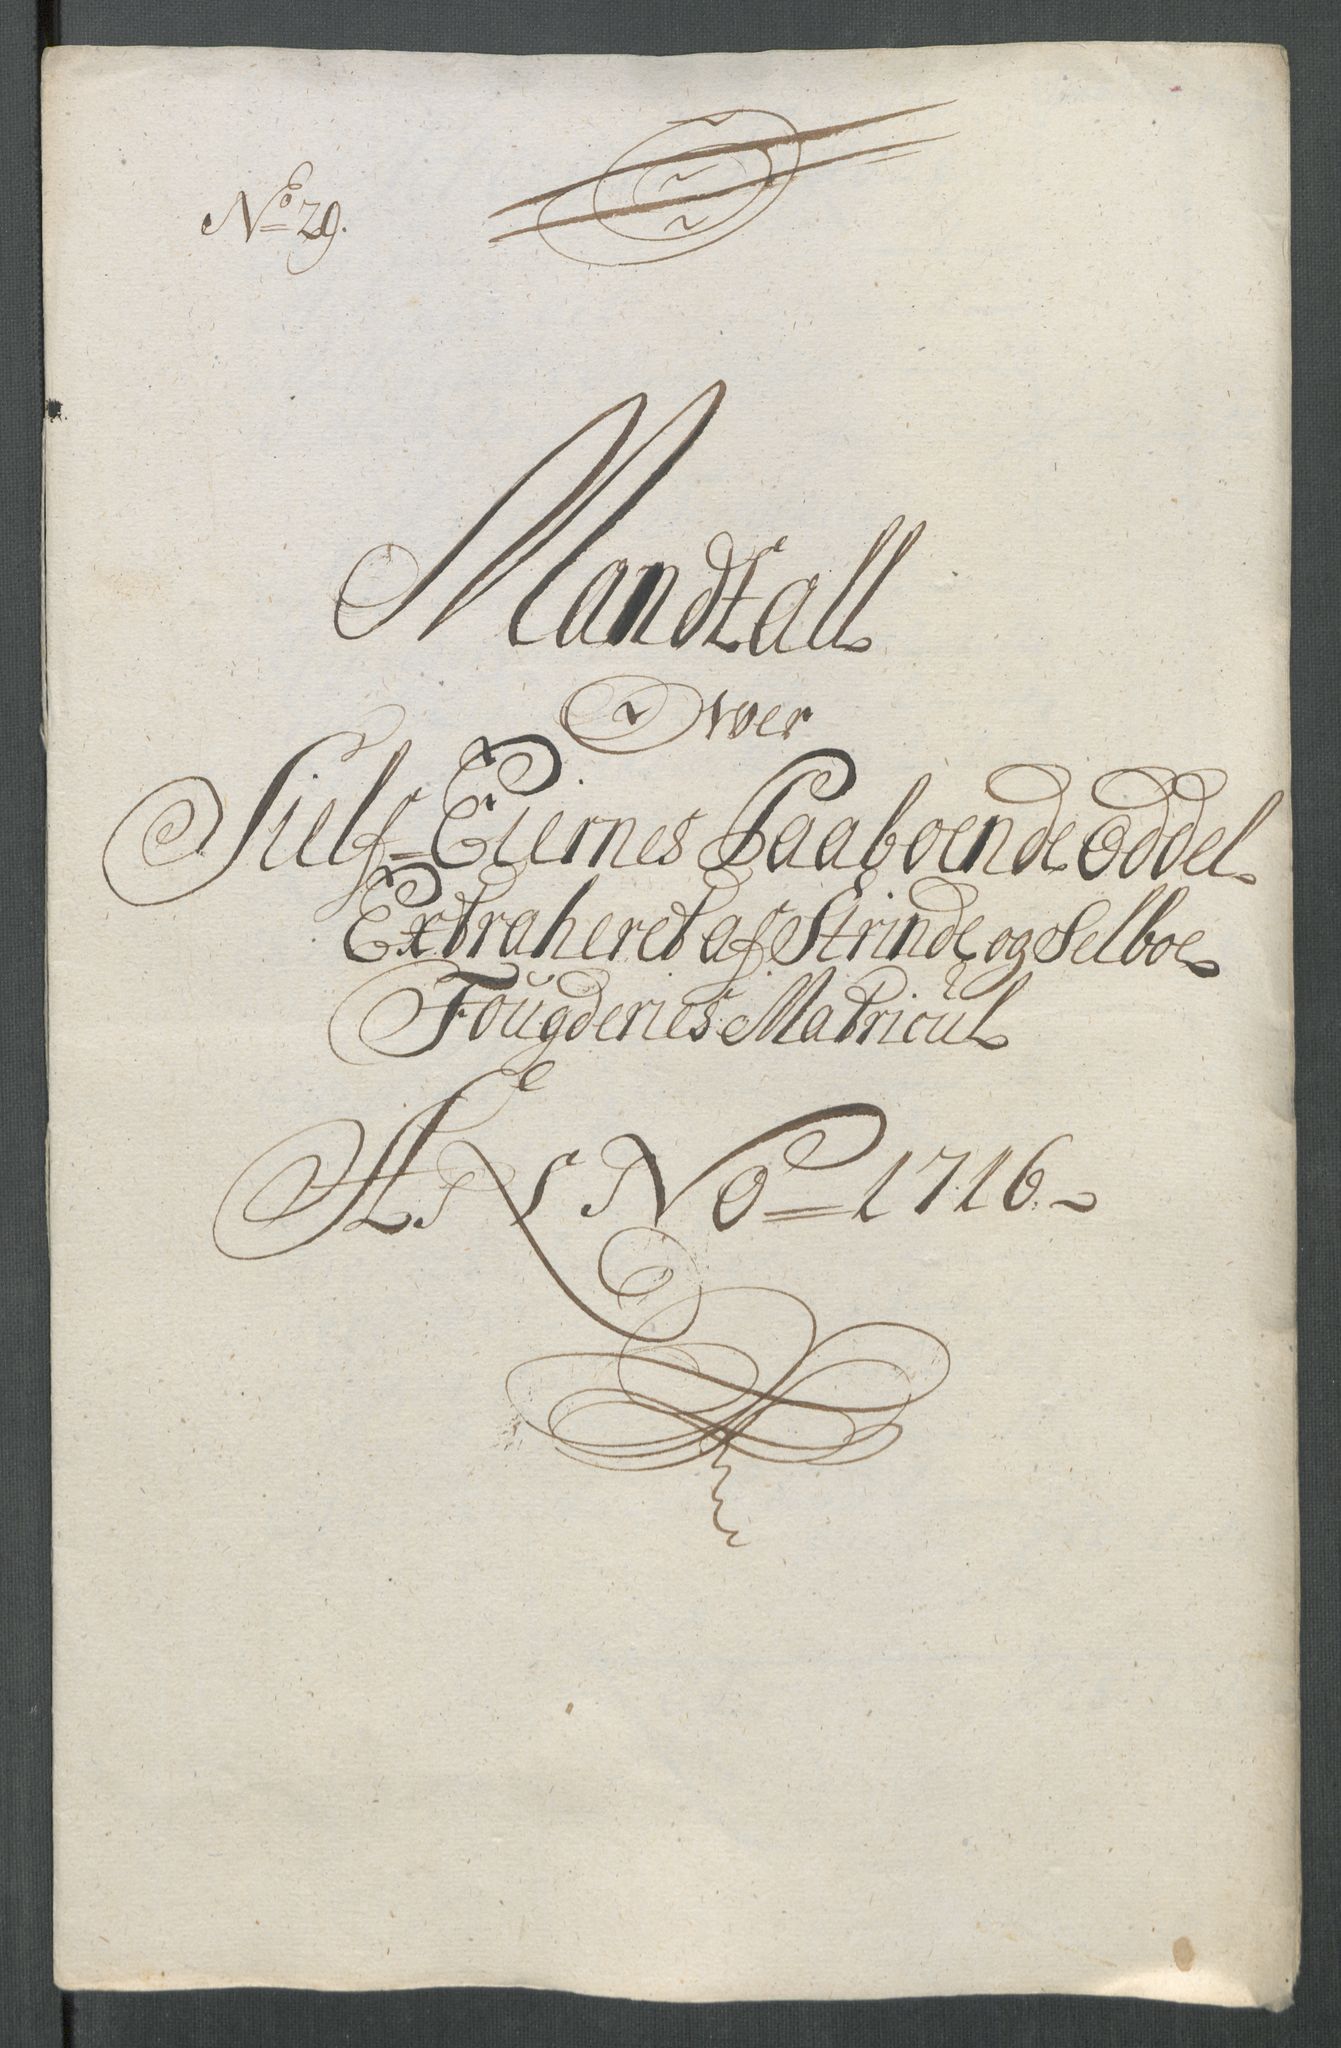 No 29.
Mandtall
Over
Sielf-Eiernes Paaboende Oddel
Extraheret af Strinde og Selboe
Fougderies Matricul
A NNo 1716.